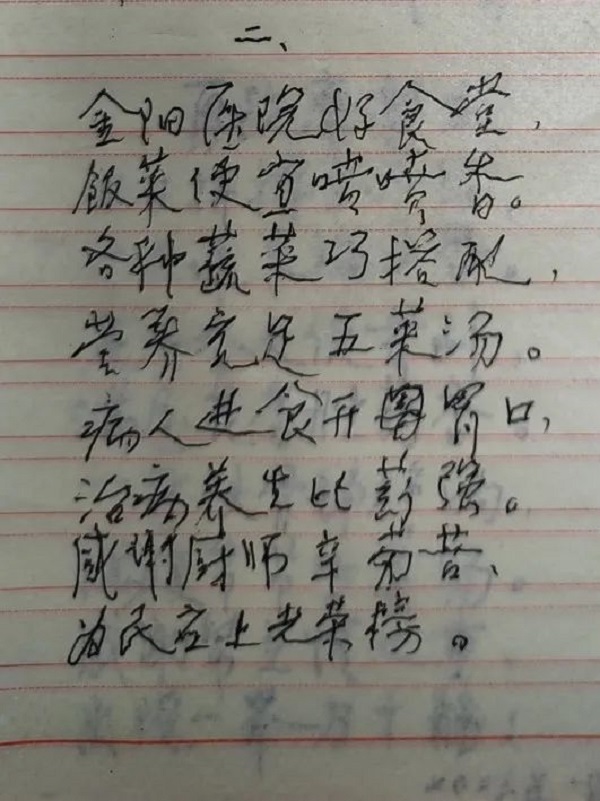 二、
金阳医院好食堂，
饭菜便宜喷喷香。
各种蔬菜巧搭配，
营养充足五菜汤。
病人进食开胃口，
治病养生比药强。
感谢厨师辛劳苦、
为民应上光荣榜。